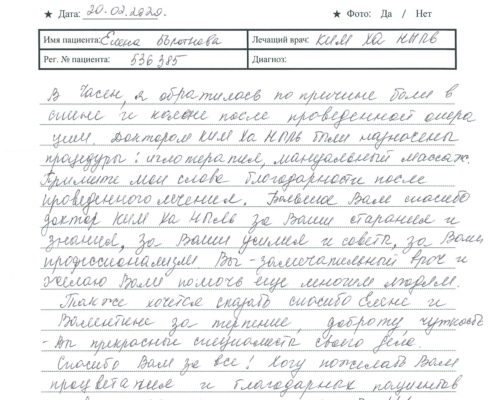 ★ Дата: 20.02.2020. ★ Фото: Да / Нет
Имя пациента: Елена Лечащий врач: КИМ ХА НЫЛЬ
Рег. № пациента: 536385 Диагноз:
В Часен, я обратилась по причине боли в
спине и колене после проведенной опера
ции. Доктором КИМ Ха НЫЛЬ были назначены
процедуры: иглотерапия, мануальный массаж.
Примите мои слова благодарности после
проведенного лечения. Большое Вам спасибо
доктор КИМ Ха НЫЛЬ за Ваши старания и
знания, за Ваши усилия и советы, за Ваш
профессионализм. Вы - замечательный врач и
желаю Вам помочь еще многим людям.
Также хочется сказать спасибо Елене и
Валентине за терпение, доброту, чуткость
- Вы прекрасные специалисты своего дела.
Спасибо Вам за все! Хочу пожелать Вам
процветания и благодарных пациентов